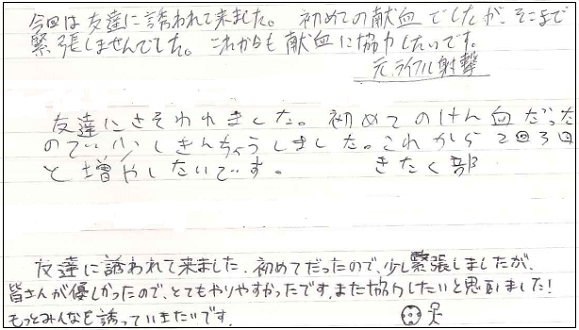 今回は友達に誘われて来ました。初めての献血でしたが、そこまで
緊張しませんでした。これからも献血に協力したいです。
元ライフル射撃
友達にさそわれました。初めてのけん血だった
ので少しきんちょうしました。これから2回3回
と増やしたいです。 きたく部
友達に誘われて来ました、初めてだったので、少し緊張しましたが、
皆さんが優しかったので、とてもやりやすかったです。また協力したいと思いました!
もっとみんなを誘っていきたいです。